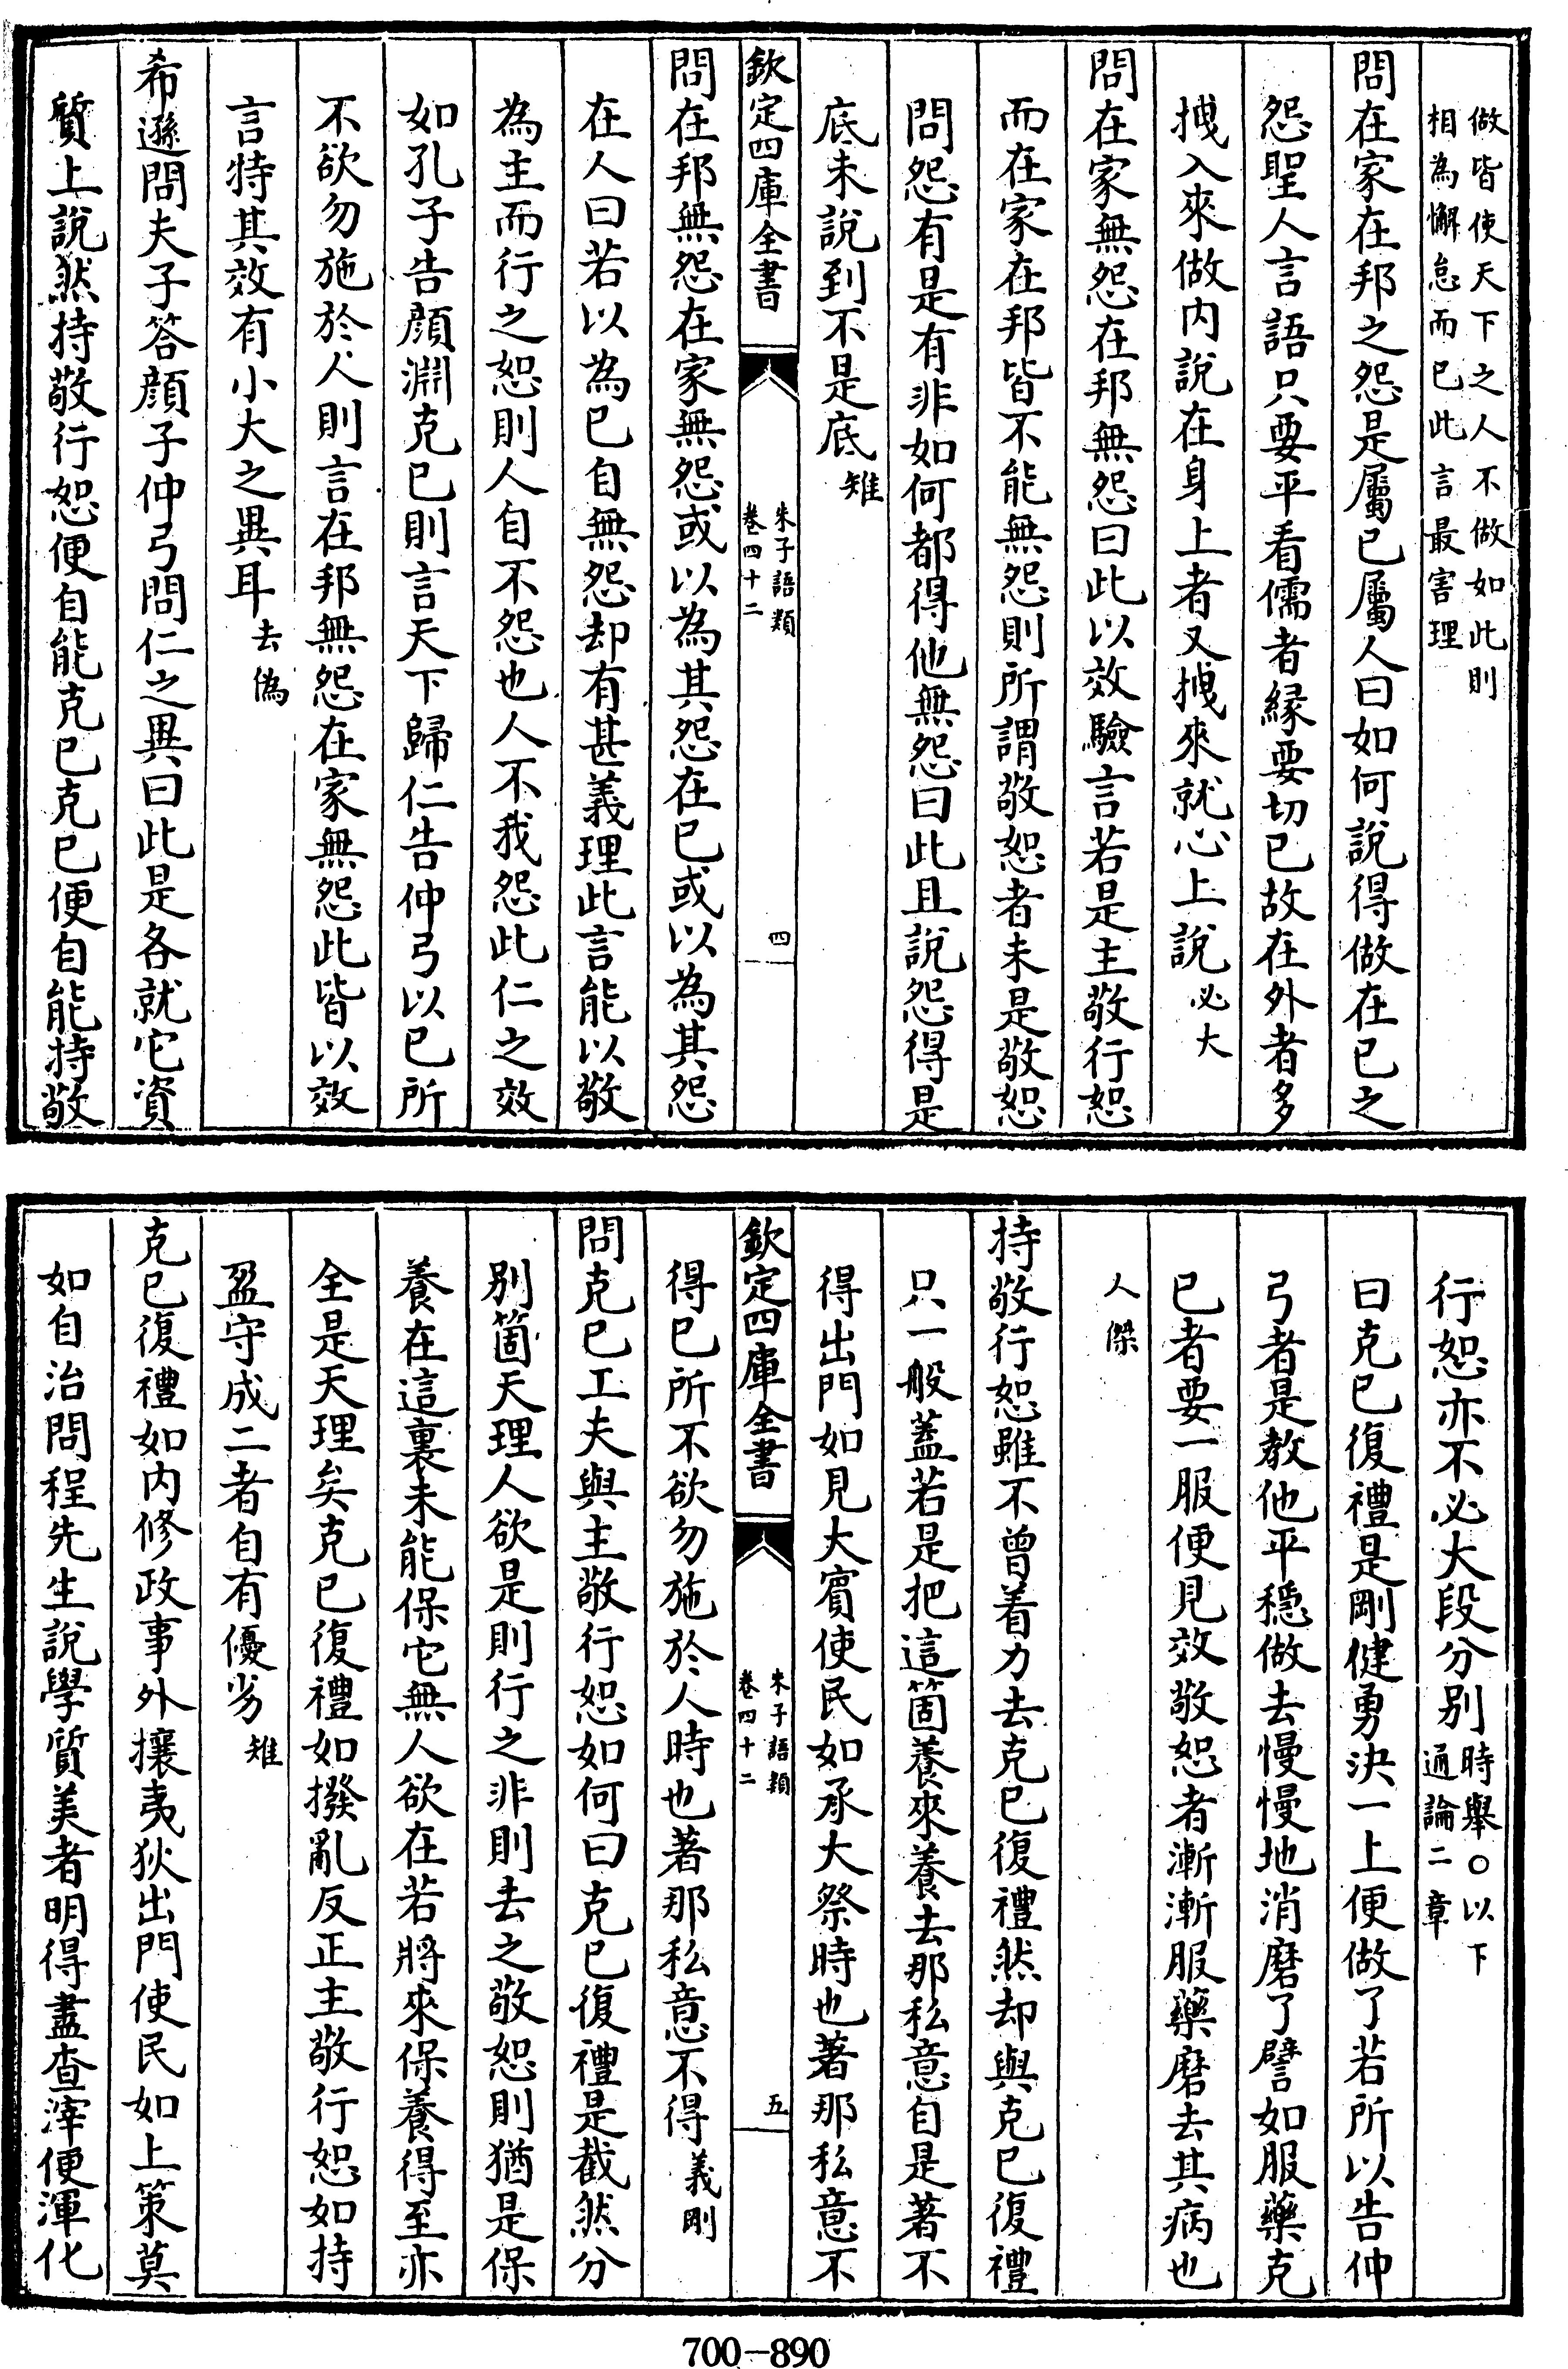 做皆使天下之人不做如此則
相為懈怠而已此言最害理
問在家在邦之怨是屬己屬人曰如何說得做在已之
怨聖人言語只要平看儒者縁要切已故在外者多
拽入來做内說在身上者又拽來就心上說必大
問在家無怨在邦無怨曰此以效驗言若是主敬行恕
而在家在邦皆不能無怨則所謂敬恕者未是敬恕
問怨有是有非如何都得他無怨曰此且說怨得是
底未說到不是底雉
欽定四庫全書
朱子語類
卷四十二
四
問在邦無怨在家無怨或以為其怨在已或以為其怨
在人曰若以為已自無怨却有甚義理此言能以敬
為主而行之恕則人自不怨也人不我怨此仁之效
如孔子告顔淵克已則言天下歸仁告仲弓以已所
不欲勿施於人則言在邦無怨在家無怨此皆以效
言特其效有小大之異耳去偽
希遜問夫子答顔子仲弓問仁之異曰此是各就它資
質上說然持敬行恕便自能克已克已便自能持敬
行恕亦不必大段分别
時舉○以下
通論二章
曰克已復禮是剛健勇決一上便做了若所以告仲
弓者是教他平穩做去慢慢地消磨了譬如服藥克
已者要一服便見效敬恕者漸漸服藥磨去其病也
人傑
持敬行恕雖不曾着力去克已復禮然却與克已復禮
只一般蓋若是把這箇養來養去那私意自是著不
得出門如見大賓使民如承大祭時也著那私意不
欽定四庫全書
朱子語類
卷四十二
五
得已所不欲勿施於人時也著那私意不得義剛
問克已工夫與主敬行恕如何曰克已復禮是截然分
别箇天理人欲是則行之非則去之敬恕則猶是保
養在這裏未能保它無人欲在若將來保養得至亦
全是天理矣克已復禮如撥亂反正主敬行恕如持
盈守成二者自有優劣雉
克已復禮如内修政事外攘夷狄出門使民如上策莫
如自治問程先生說學質美者明得盡查滓便渾化
700-890